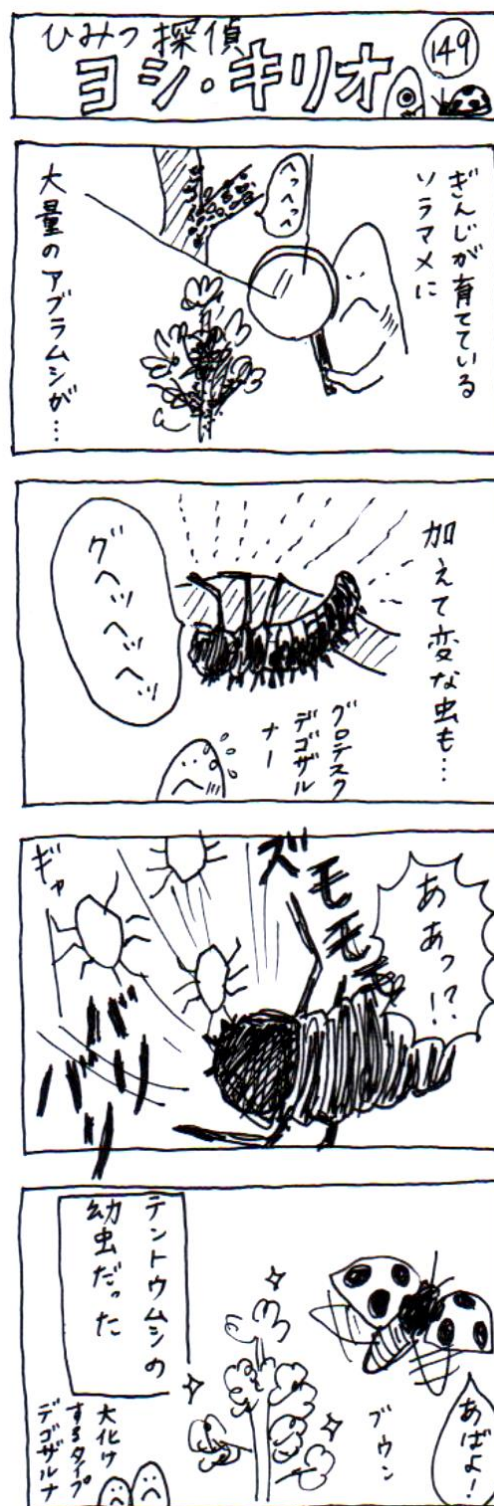 ひみつ探偵
ヨシ・キリオ
149
ぎんじが育てている
ソラマメに
ヘッヘッヘ
大量のアブラムシが…
加えて変な虫も…
グヘッヘッヘッ
グロテスク
デゴザル
ナー
ああっ!?
ズモモモ
ギャ
バババ
あばよ!
ブウン
テントウムシの
幼虫だった
大化け
するタイプ
デゴザルナ